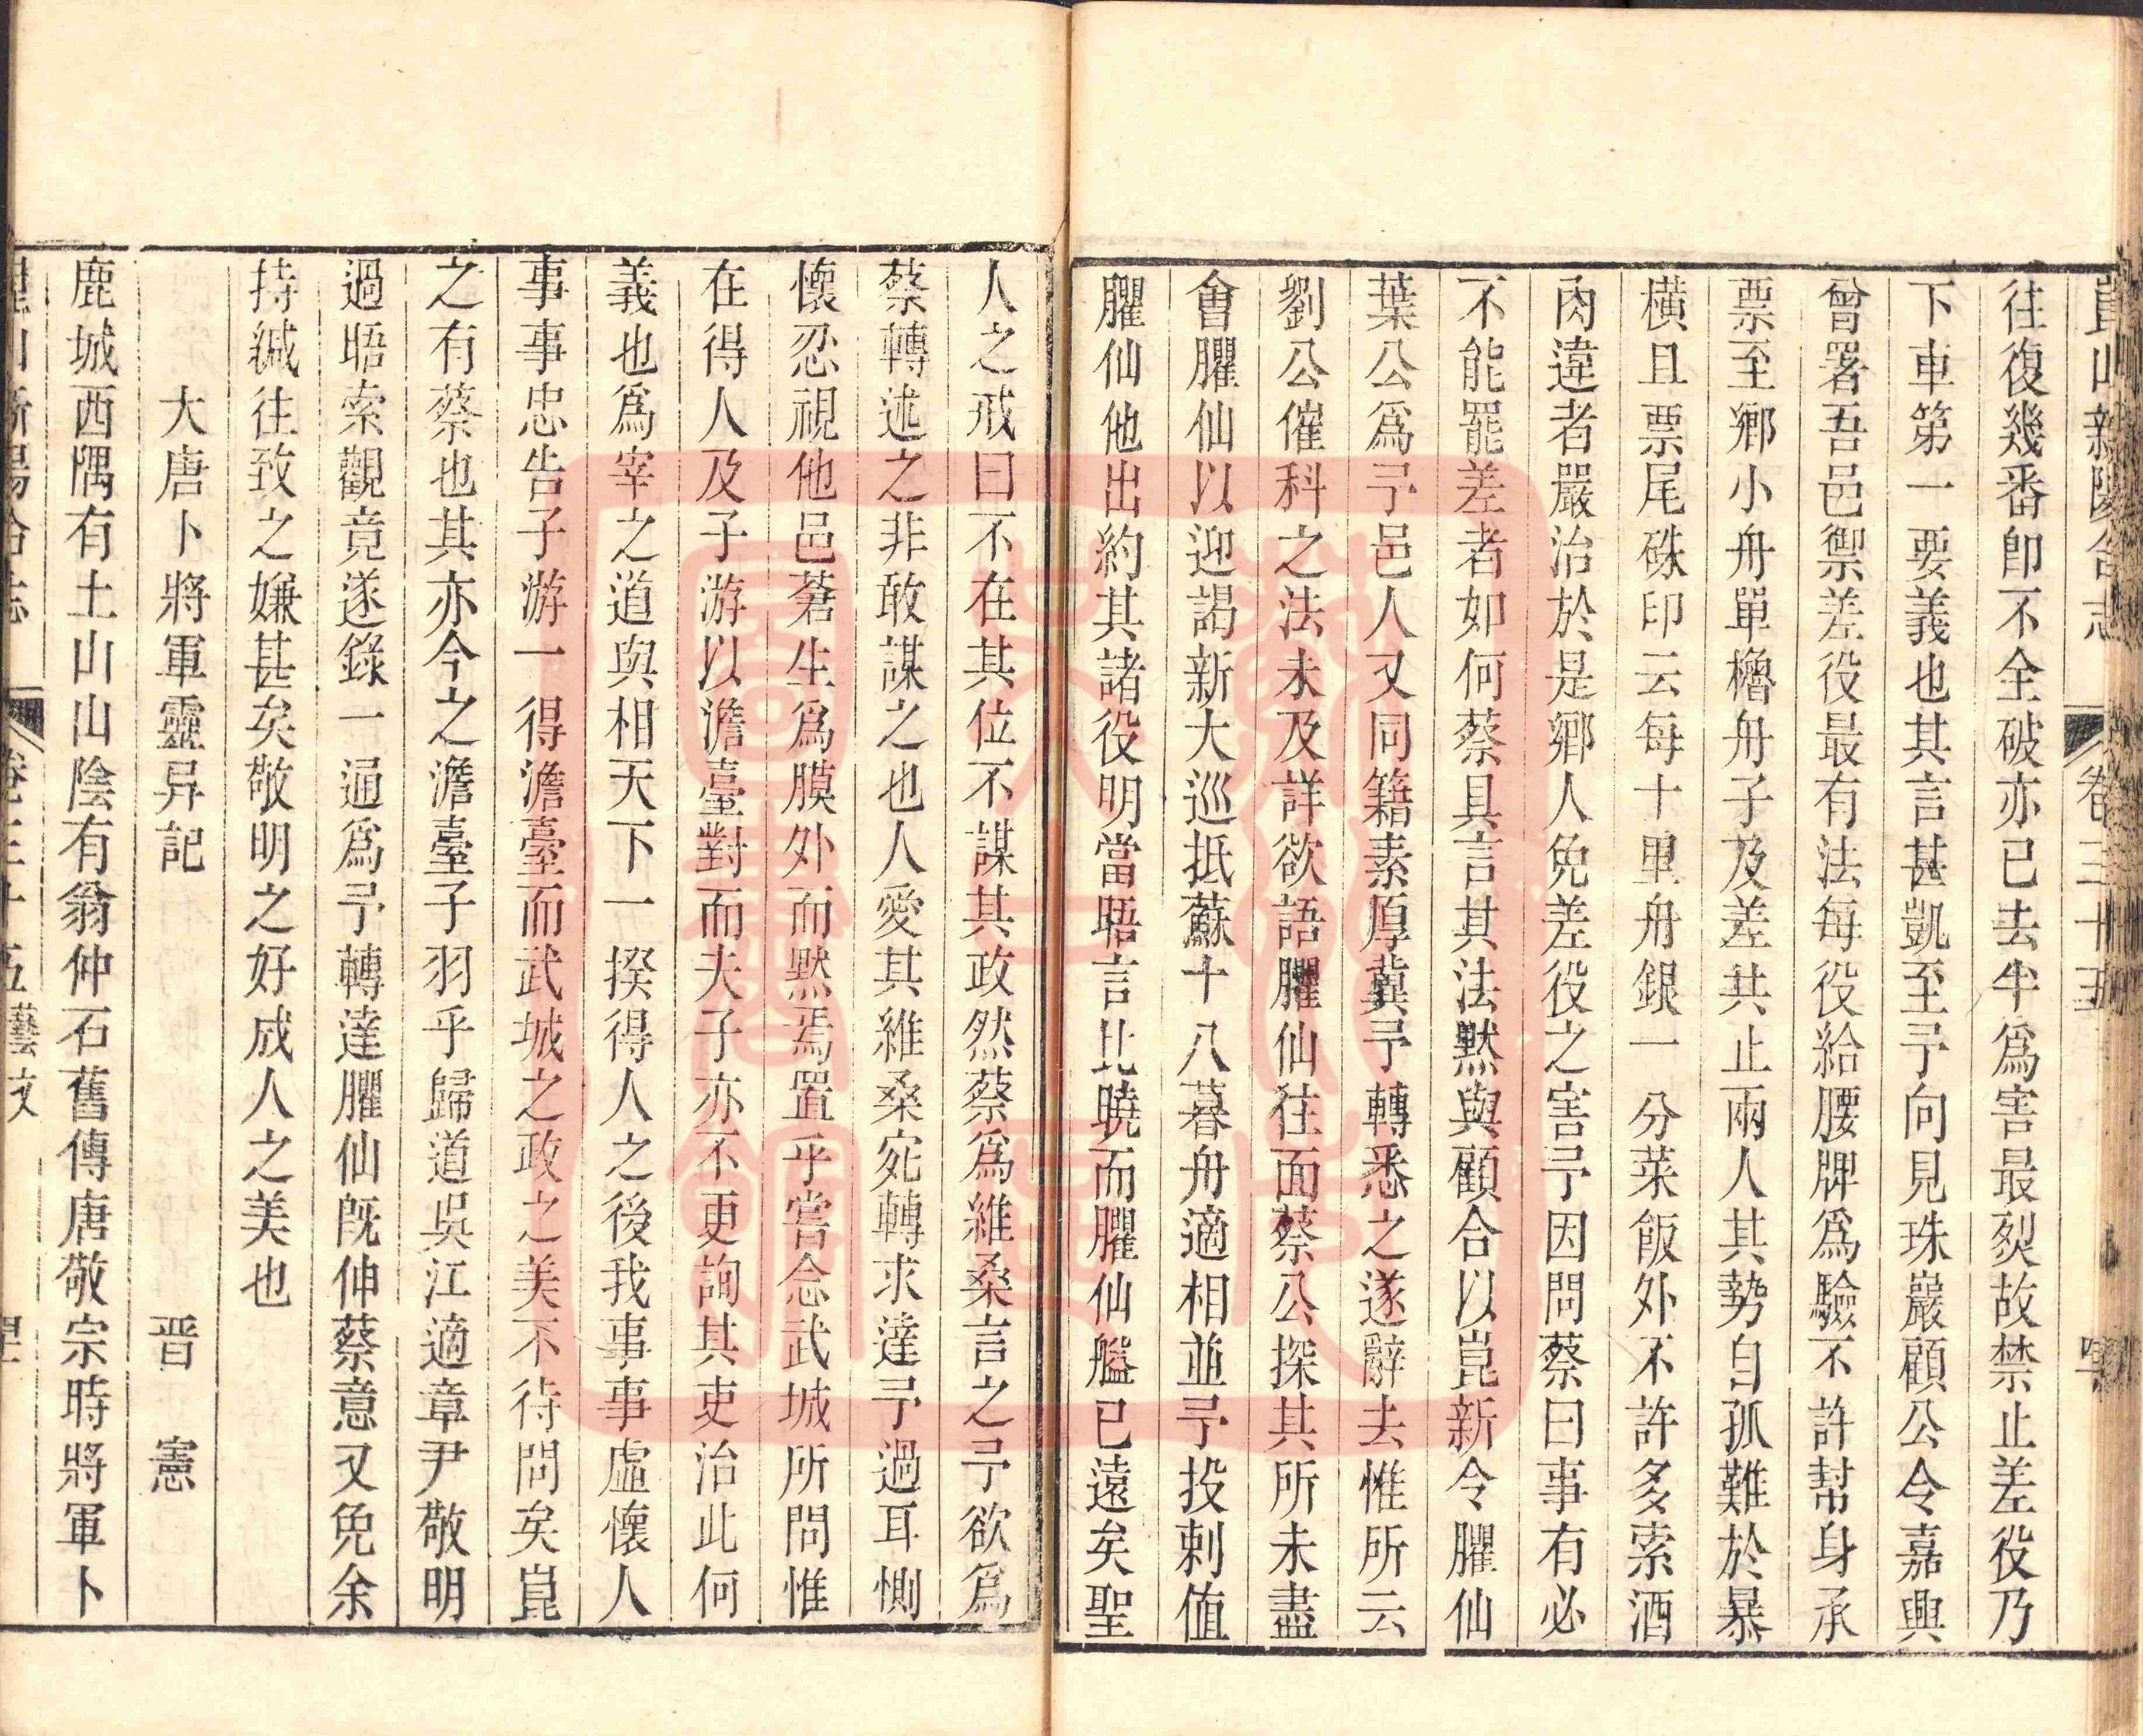 崑山新陽合志
卷三十五
往復幾番卽不全破亦已去半爲害最烈故禁止差役乃
下車第一要義也其言甚凱至予向見珠巖顧公令嘉興
曾署吾邑禦差役最有法每役給腰牌爲驗不許幫身承
票至鄉小舟單櫓舟子及差共止兩人其勢自孤難於暴
橫且票尾硃印云每十里舟銀一分菜飯外不許多索酒
肉違者嚴治於是鄉人免差役之害予因問蔡曰事有必
不能罷差者如何蔡具言其法黙與顧合以崑新令臞仙
葉公爲予邑人又同籍素厚冀予轉悉之遂辭去惟所云
劉公催科之法未及詳欲語臞仙往面蔡公探其所未盡
會臞仙以迎謁新大巡抵蘇十八暮舟適相並予投刺值
臞仙他出約其諸役明當晤言比曉而臞仙艗已遠矣聖
人之戒曰不在其位不謀其政然蔡爲維桑言之予欲爲
蔡轉述之非敢謀之也人愛其維桑宛轉求達予過耳惻
懷忍視他邑蒼生爲膜外而黙焉置乎嘗念武城所問惟
在得人及子游以澹臺對而夫子亦不更詢其吏治此何
義也爲宰之道與相天下一揆得人之後我事事虛懷人
事事忠告子游一得澹臺而武城之政之美不待問矣崑
之有蔡也其亦今之澹臺子羽乎歸道吳江適章尹敬明
過晤索觀竟遂錄一通爲予轉達臞仙旣伸蔡意又免余
持緘往致之嫌甚矣敬明之好成人之美也
大唐卜將軍靈异記
晋憲
鹿城西隅有土山山陰有翁仲石舊傳唐敬宗時將軍卜
崑山新陽合志
卷三十五藝文